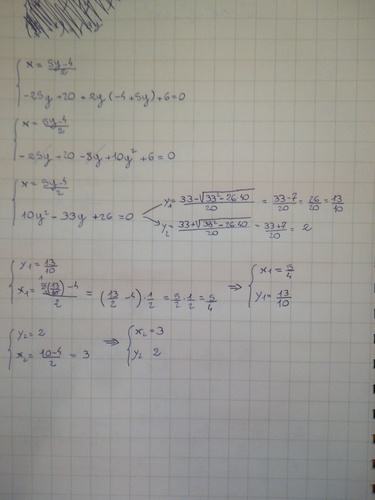 x = (5y-4)/2
-25y+20+2y(-4+5y)+6=0
x = (5y-4)/2
-25y+20-8y+10y²+6=0
x = (5y-4)/2
10y²-33y+26=0
y₁ = (33-√(33²-26·40))/20 = (33-7)/20 = 26/20 = 13/10
y₂ = (33+√(33²-26·40))/20 = (33+7)/20 = 2
y₁ = 13/10
x₁ = (5(13/10)-4)/2 = (13/2 -4)·1/2 = 5/2·1/2 = 5/4 ⇒ x₁ = 5/4
y₁ = 13/10
y₂ = 2
x₂ = (10-4)/2 = 3 ⇒ x₂ = 3
y₂ 2